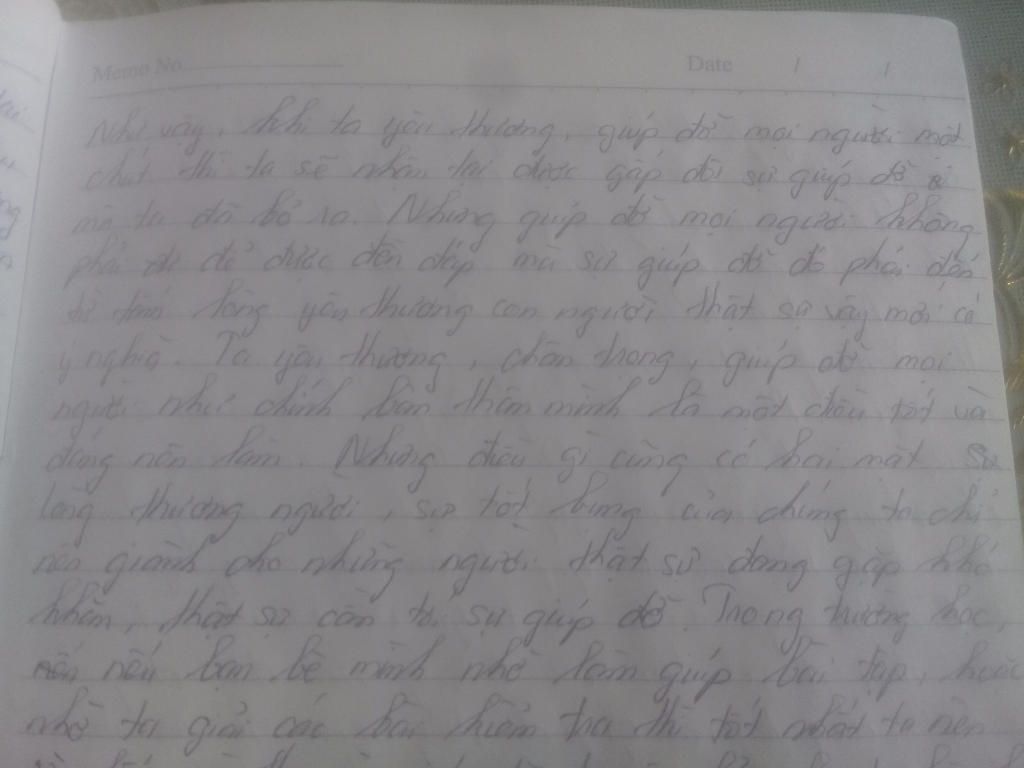 Memo No.
Date / /
Như vậy, khi ta yêu thương, giúp đỡ mọi người một
chút thì ta sẽ nhận lại được gấp đôi sự giúp đỡ
mà ta đã bỏ ra. Nhưng giúp đỡ mọi người không
phải để được đền đáp mà sự giúp đỡ đó phải đến
từ tấm lòng yêu thương con người thật sự vậy mới có
ý nghĩa. Ta yêu thương, chân trọng, giúp đỡ mọi
người như chính bản thân mình là một điều tốt và
đáng nên làm. Nhưng điều gì cũng có hai mặt
lòng thương người, sự tốt bụng của chúng ta chỉ
nên giành cho những người thật sự đang gặp khó
khăn, thật sự cần tới sự giúp đỡ. Trong trường học,
nếu bạn bè mình nhờ làm giúp bài tập, hoặc
nhờ ta giải các bài kiểm tra thì tốt nhất ta nên